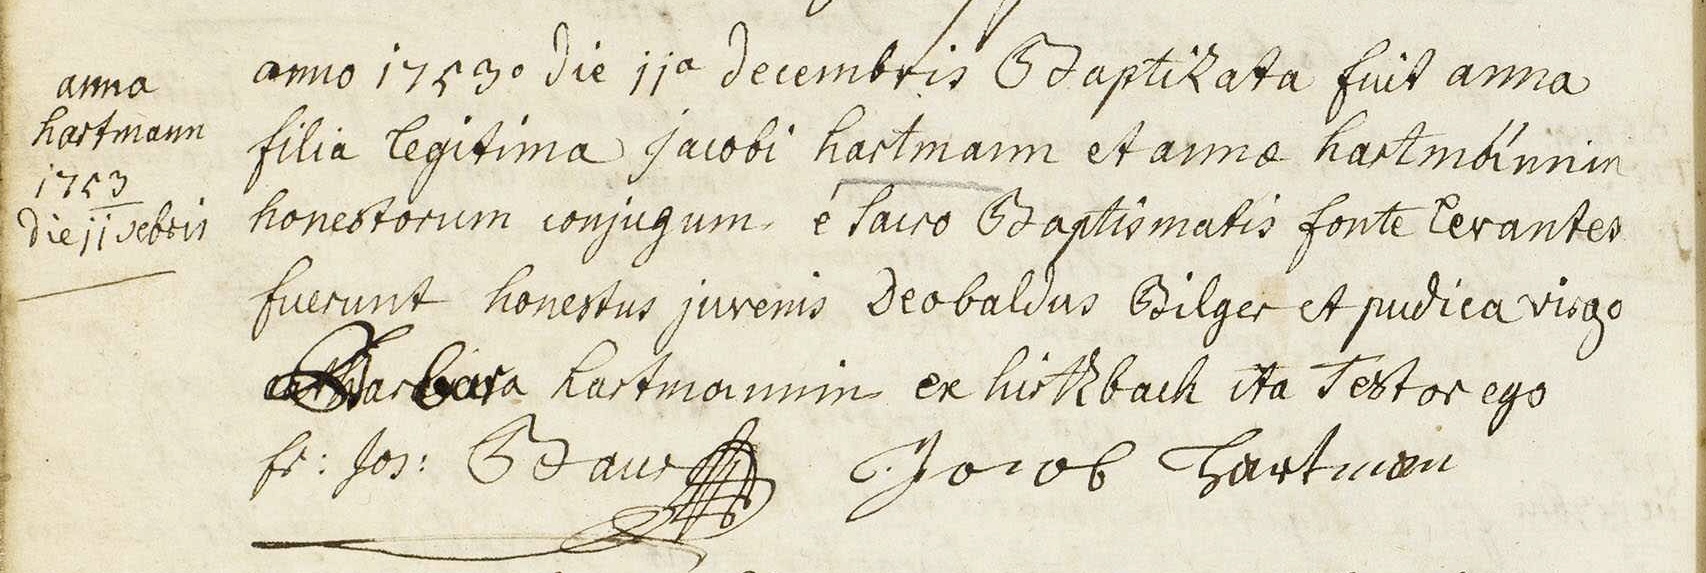 anna
hartmann
1753
die 11 xebris
anno 1753° die 11a decembris Baptizata fuit anna
filia legitima jacobi hartmann et annæ hartmännin
honestorum conjugum é sacro Baptismatis fonte levantes
fuerunt honestus juvenis Deobaldus Bilger et pudica virgo
Barbara hartmannin ex hirtzbach ita Testor ego
fr: Jos: Baur Jocob Hartman